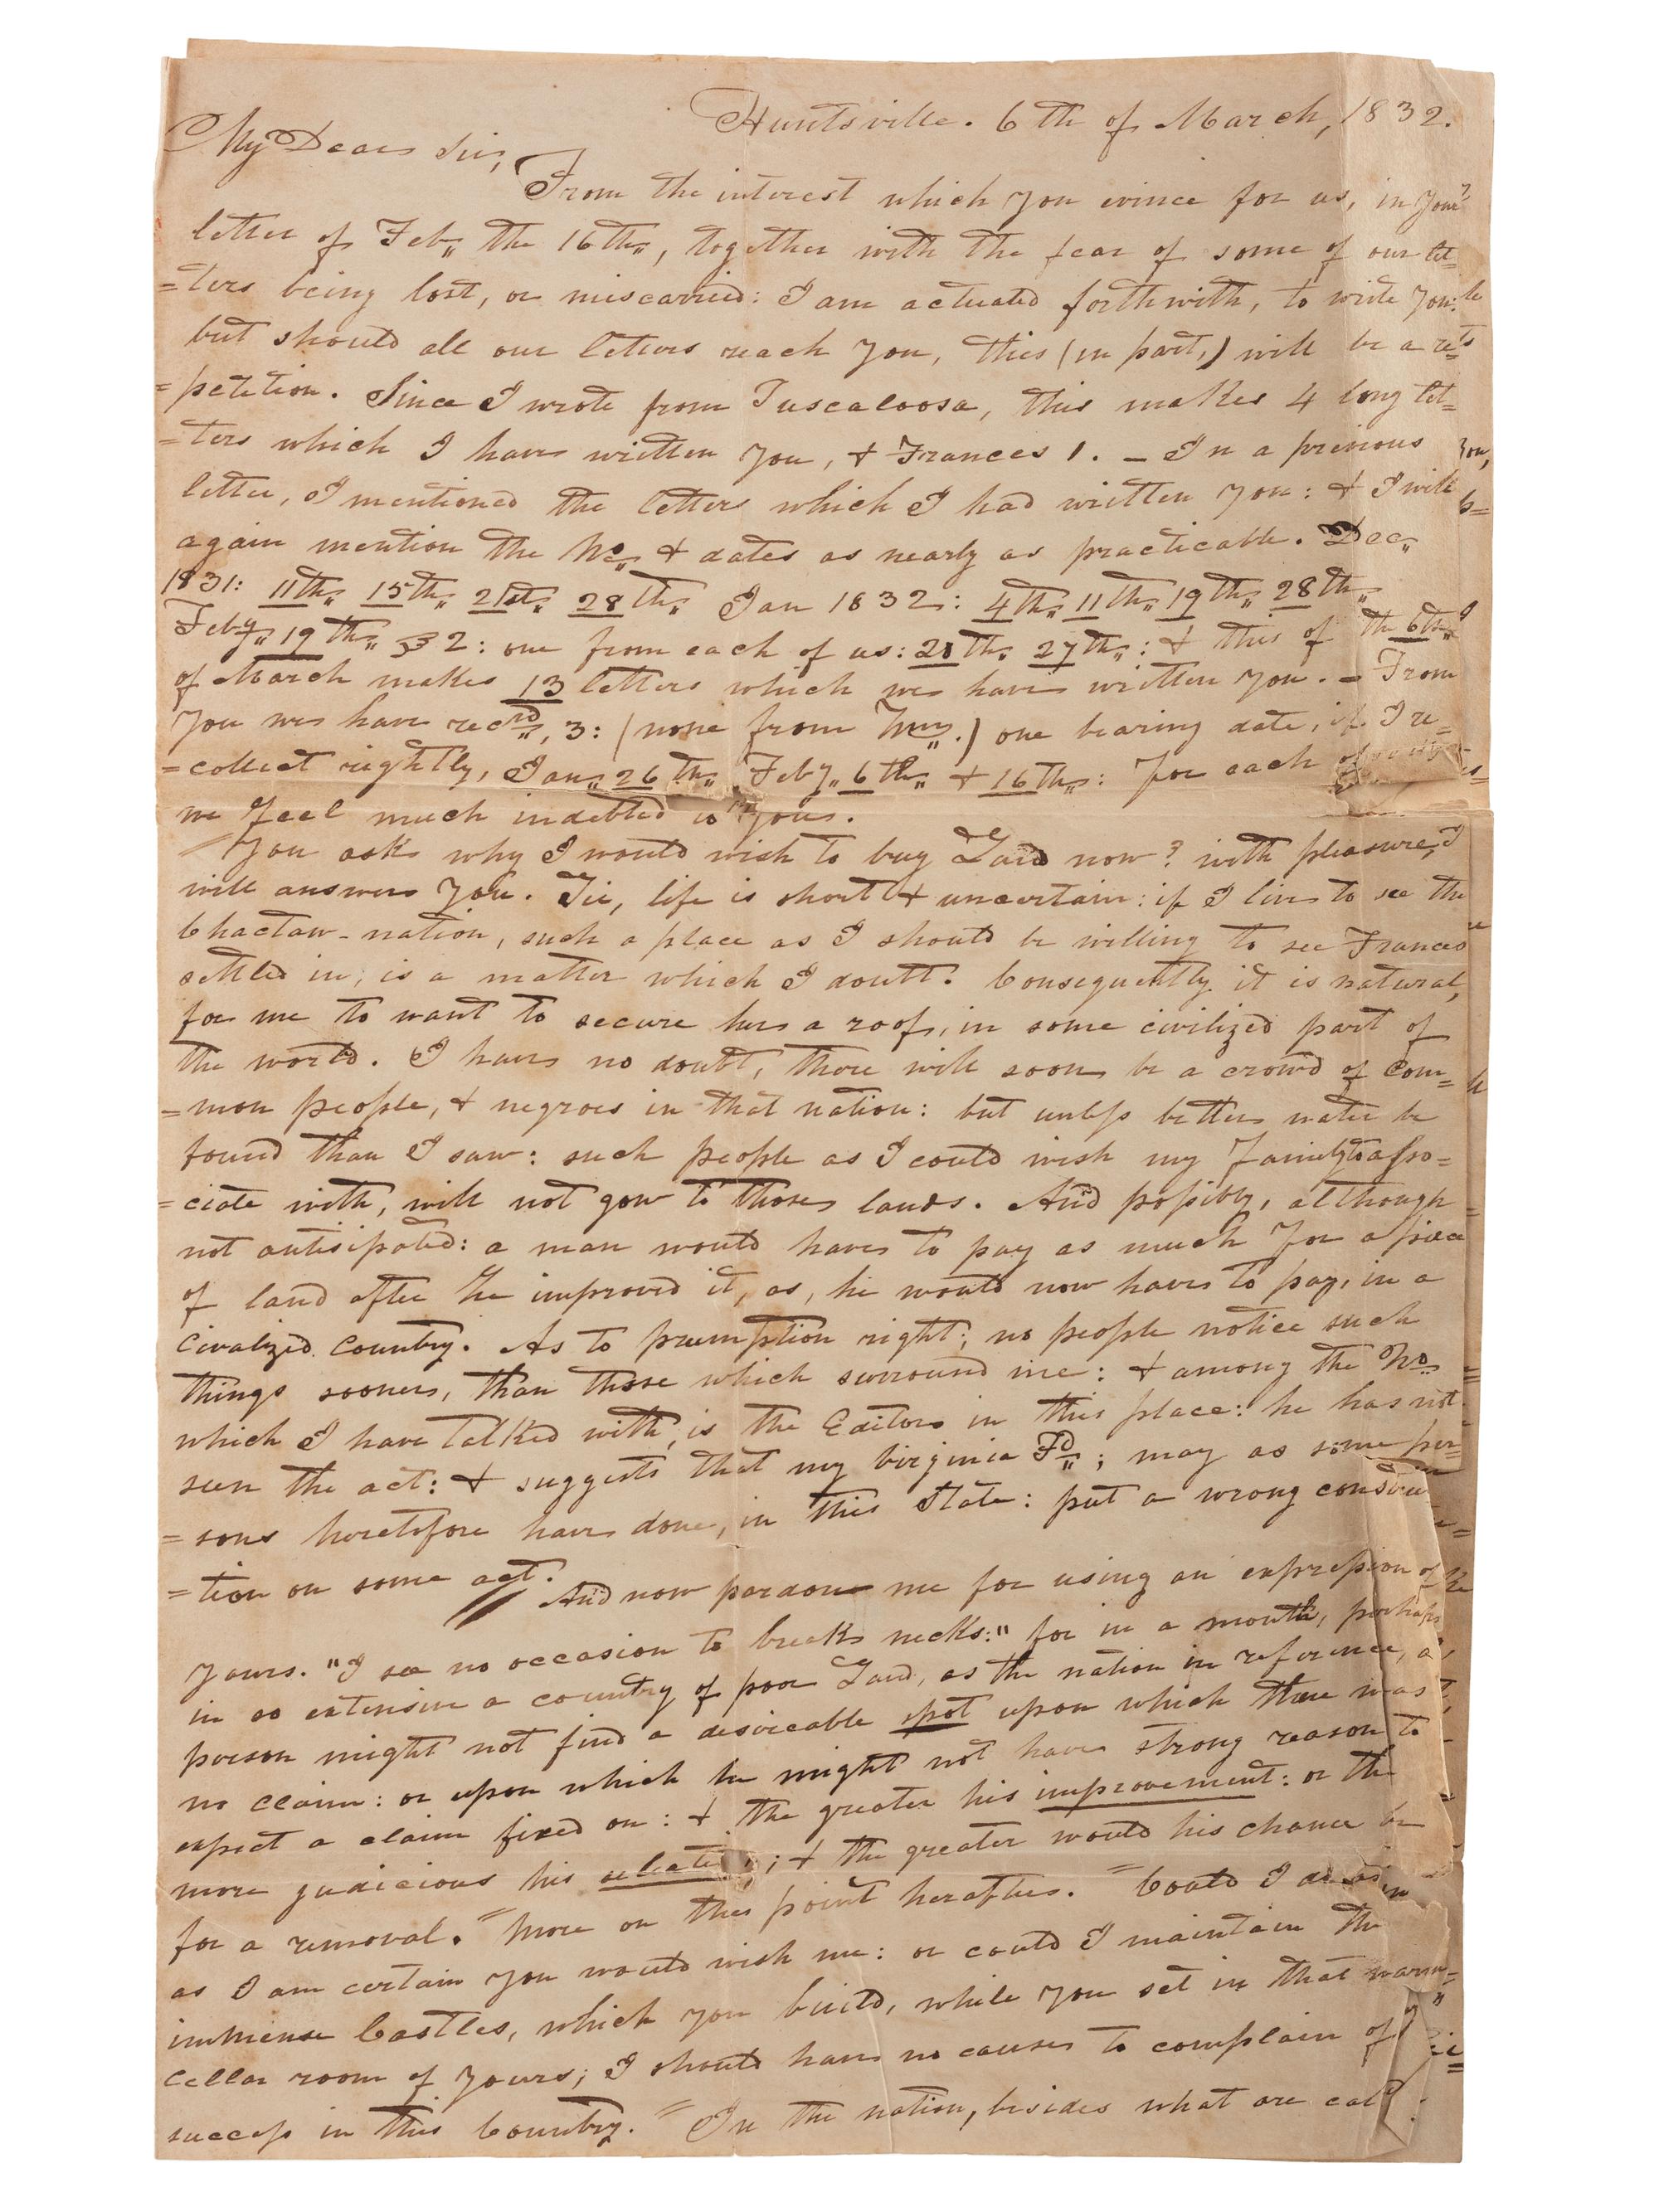 Huntsville. 6th of March, 1832.
My Dear Sir,
From the interest which you evince for us, in your
letter of Feb,, the 16th,,, together with the fear of some of our let-
=ters being lost, or miscarried: I am actuated forthwith, to write you:
but should all our letters reach you, this (in part,) will be a re=
=petition. Since I wrote from Tuscaloosa, this makes 4 long let=
=ters which I have written you, & Frances 1. – In a previous
letter, I mentioned the letters which I had written you: & I will
again mention the No,, & dates as nearly as practicable. Dec,,
1831: 11th,, 15th,, 21st,, 28th,, Jan 1832: 4th,, 11th,, 19th,, 28th,,
Feby,, 19th,, 2: one from each of us: 28th,, 27th,,: & this of the 6th,,
of March makes 13 letters which we have written you. – From
you we have recd,,, 3: (none from Wm,,.) one bearing date, if I re=
=collect rightly, Jan,, 26th,, Feby,, 6th,, & 16th,,: for each of
we feel much indebted to you.
You ask why I would wish to buy Land now? with pleasure, I
will answer you. Sir, life is short & uncertain: if I live to see the
Choctaw-nation, such a place as I should be willing to see Frances
settled in, is a matter which I doubt. Consequently it is natural,
for me to want to secure her a roof, in some civilized part of
the world. I have no doubt, there will soon be a crowd of com=
=mon people, & negroes in that nation: but unless better water be
found than I saw: such people as I could wish my Family to asso=
=ciate with, will not gow to those lands. And possibly, although
not antisipated: a man would have to pay as much for a piece
of land after he improved it, as, he would now have to pay, in a
Civalized Country. As to preemption right; no people notice such
things sooner, than those which surround me: & among the No,,
which I have talked with, is the Editor in this place: he has not
seen the act: & suggests that my Virginia Fd,,; may as some per=
=sons heretofore have done, in this State: put a wrong construc
=tion on some act. And now pardon me for using an expression of
yours. "I see no occasion to break necks:" for in a month, perhaps
in so extensive a country of poor Land, as the nation in reference, a
person might not find a desireable spot upon which there was
no claim: or upon which he might not have strong reason to
expect a claim fixed on: & the greater his improvement: or the
more judicious his ; & the greater would his chance be
for a removal. = More on this point hereafter. = Could I do
as I am certain you would wish me: or could I maintain the
immense Castles, which you build, while you set in that warm
Cellar room of yours; I should have no cause to complain of
success in this Country. = In the nation, besides what are